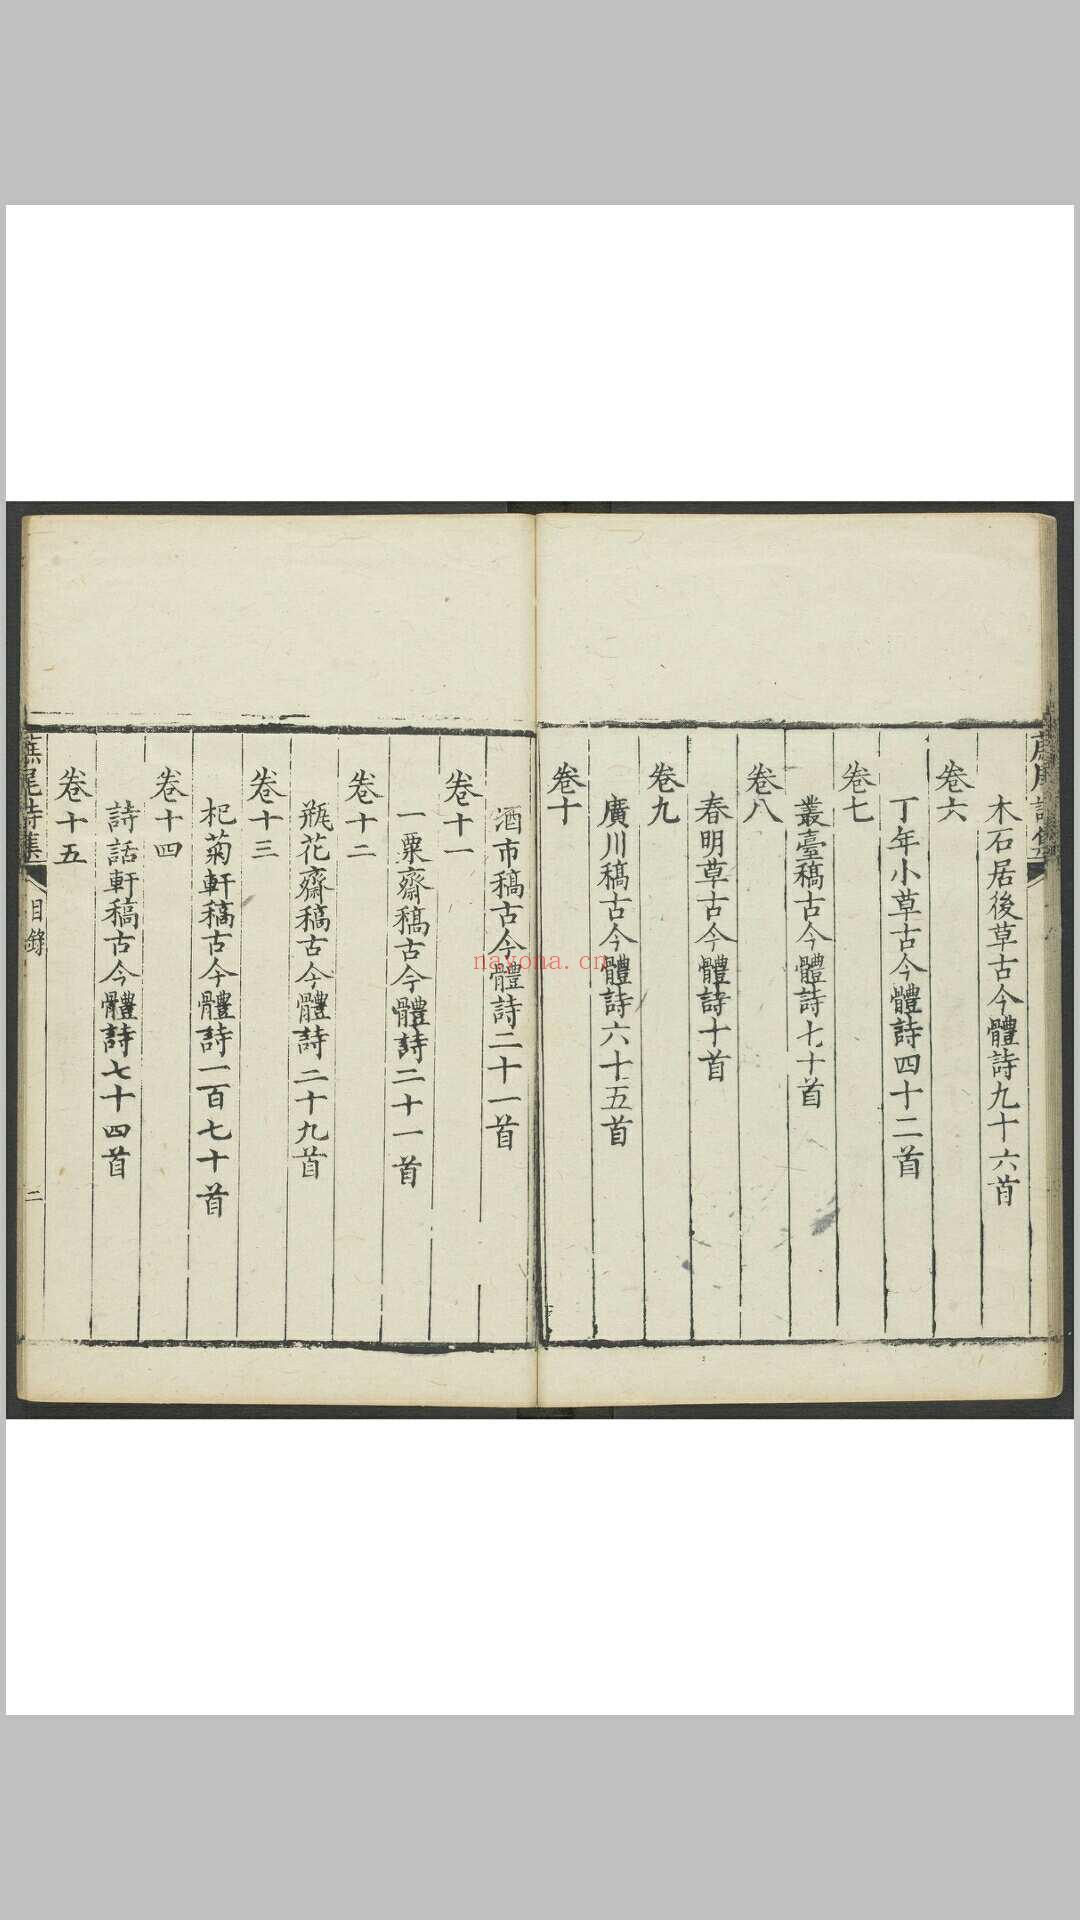 木石居後草古今體詩九十六首
卷六
丁年小草古今體詩四十二首
卷七
叢臺稿古今體詩七十首
卷八
春明草古今體詩十首
卷九
廣川稿古今體詩六十五首
卷十
酒市稿古今體詩二十一首
卷十一
一粟齋稿古今體詩二十一首
卷十二
瓶花齋稿古今體詩二十九首
卷十三
杞菊軒稿古今體詩一百七十首
卷十四
詩話軒稿古今體詩七十四首
卷十五
蕉尾詩集 目錄 二
nayona.cn